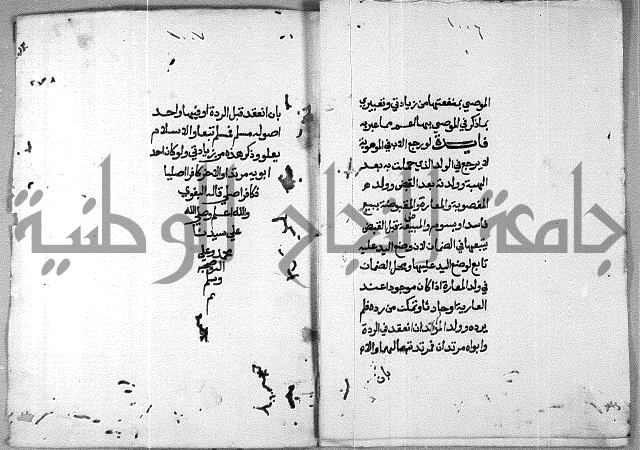 ١٠٠٦
الموصي بمنفعتها من زيادتي وتعبيري
بما ذكر في الموصي بها اعم مما عبر به
فايدة لو رجع الاب في الموهوبة
لا يرجع في الولد الذي حملت به بعد
الهبة وولدته بعد القبض وولد
المغصوبة والمعارة والمقبوضة ببيع
فاسد او بسوم والمبيعة قبل القبض
يتبعها في الضمان لان وضع اليد عليه
تابع لوضع اليد عليها ومحل الضمان
في ولد المعارة اذا كان موجودا عند
العارية او حادثا وتمكن من رده فلم
يرده وولد المرتد ان انعقد في الردة
وابواه مرتدان فمرتد تبعا لهما والا
بان
١٠٠٧
بان انعقد قبل الردة او فيها واحد
اصوله مسلم فمسلم تبعا والاسلام
يعلو وذكر هذه من زيادتي ولو كان احد
ابويه مرتدا والاخر كافرا اصليا
فكافر اصلي قاله البغوي
والله اعلم وصلى الله
على سيدنا
محمد وعلى
اله وصحبه
وسلم
م
جامعة النجاح الوطنية